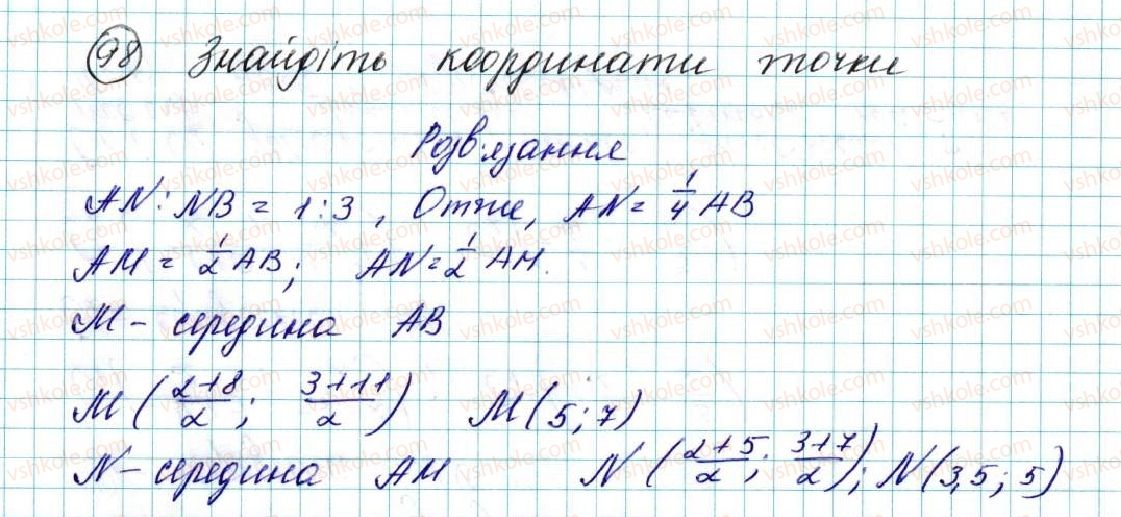 98 Знайдіть координати точки
Розв'язання
AN : NB = 1 : 3 , Отже, AN = 1/4 AB
AM = 1/2 AB; AN = 1/2 AM.
M - середина AB
M (2+8/2 ; 3+11/2) M (5; 7)
N - середина AM N (2+5/2 ; 3+7/2); N (3,5; 5)